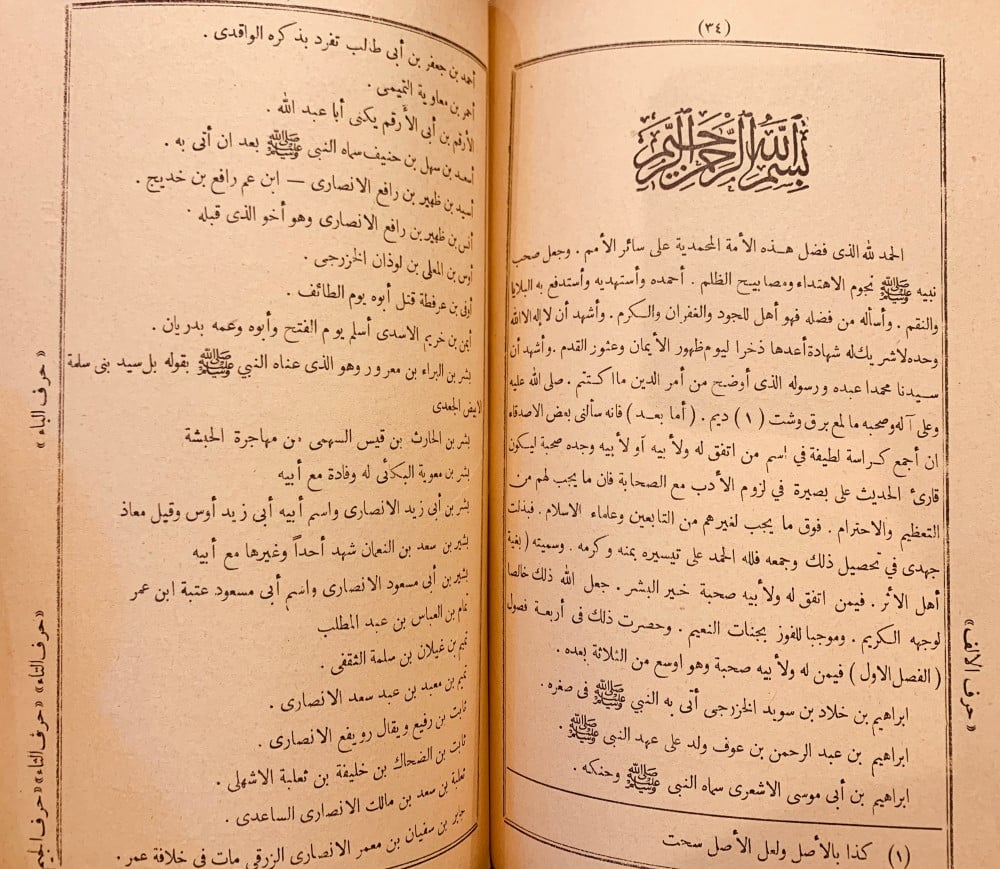 (٣٤)
بسم الله الرحمن الرحيم
الحمد لله الذى فضل هذه الأمة المحمدية على سائر الأمم . وجعل صحب
نبيه ﷺ نجوم الاهتداء ومصابيح الظلم . أحمده وأستهديه وأستدفع به البلايا
والنقم . وأسأله من فضله فهو أهل للجود والغفران والكرم . وأشهد أن لا إله الا الله
وحده لا شريك له شهادة أعدها ذخرا ليوم ظهور الأيمان وعثور القدم . وأشهد أن
سيدنا محمدا عبده ورسوله الذى أوضح من أمر الدين ما اكتتم . صلى الله عليه
وعلى آله وصحبه ما لمع برق وشت (١) ديم . (أما بعد) فانه سألنى بعض الاصدقاء
ان أجمع كراسة لطيفة في اسم من اتفق له ولأبيه أو لأبيه وجده صحبة ليكون
قارئ الحديث على بصيرة في لزوم الأدب مع الصحابة فان ما يجب لهم من
التعظيم والاحترام . فوق ما يجب لغيرهم من التابعين وعلماء الاسلام . فبذلت
جهدى في تحصيل ذلك وجمعه فلله الحمد على تيسيره بمنه وكرمه . وسميته (بغية
أهل الأثر . فيمن اتفق له ولأبيه صحبة خير البشر . جعل الله ذلك خالصا
لوجهه الكريم . وموجبا للفوز بجنات النعيم . وحصرت ذلك فى أربعة فصول
(الفصل الاول) فيمن له ولأبيه صحبة وهو اوسع من الثلاثة بعده .
«حرف الالف»
ابراهيم بن خلاد بن سويد الخزرجى أتى به النبي ﷺ فى صغره .
ابراهيم بن عبد الرحمن بن عوف ولد على عهد النبي ﷺ .
ابراهيم بن أبى موسى الاشعرى سماه النبي ﷺ وحنكه .
(١) كذا بالأصل ولعل الأصل سحت
أحمد بن جعفر بن أبى طالب تفرد بذكره الواقدى .
أحمر بن معاوية التميمى .
الأرقم بن أبى الأرقم يكنى أبا عبد الله .
أسعد بن سهل بن حنيف سماه النبي ﷺ بعد ان أتى به .
أسيد بن ظهير بن رافع الانصارى — ابن عم رافع بن خديج .
أنس بن ظهير بن رافع الانصارى وهو أخو الذى قبله .
أوس بن المعلى بن لوذان الخزرجى .
أوفى بن عرفطة قتل أبوه يوم الطائف .
أيمن بن خريم الاسدى أسلم يوم الفتح وأبوه وعمه بدريان .
«حرف الباء»
بشر بن البراء بن معرور وهو الذى عناه النبي ﷺ بقوله بل سيد بنى سلمة
الابيض الجعدى
بشر بن الحارث بن قيس السهمى من مهاجرة الحبشة
بشر بن معوية البكائى له وفادة مع أبيه
بشر بن أبى زيد الانصارى واسم أبيه أبى زيد أوس وقيل معاذ
بشير بن سعد بن النعمان شهد أحداً وغيرها مع أبيه
بشير بن أبى مسعود الانصارى واسم أبى مسعود عتبة ابن عمر
«حرف التاء» «حرف الثاء» «حرف الجيم
تمام بن العباس بن عبد المطلب
تميم بن غيلان بن سلمة الثقفى .
تميم بن معبد بن عبد سعد الانصارى .
ثابت بن رفيع ويقال رويفع الانصارى .
ثابت بن الضحاك بن خليفة بن ثعلبة الاشهلى .
ثعلبة بن سعد بن مالك الانصارى الساعدى .
جابر بن سفيان بن معمر الانصارى الزرقى مات فى خلافة عمر .